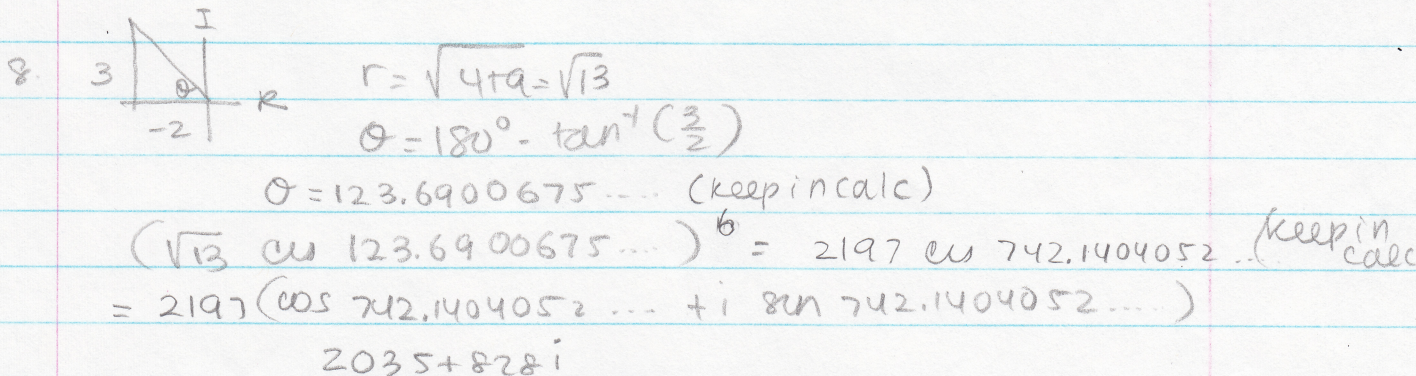 I
8. 3 θ R r = √4+9 = √13
-2 θ = 180° - tan⁻¹ (3/2)
θ = 123.6900675..... (keep in calc)
(√13 cis 123.6900675.....)⁶ = 2197 cis 742.1404052... (keep in calc
= 2197 (cos 742.1404052..... + i sin 742.1404052.....)
2035 + 828i